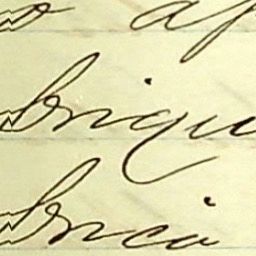 o ap
briqu
bricó